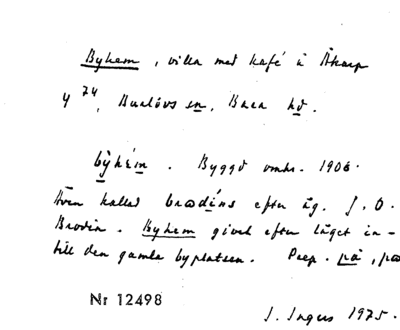 Byhem, villa med kafé å Åkarp
4 74, Burlövs sn, Bara hd.
by̌hém. Byggd omkr. 1906.
Även kallad brodíns efter äg. J. O.
Brodin. Byhem givet efter läget in-
till den gamla byplatsen. Prep. på, på
Nr 12498
I. Ingers 1975.